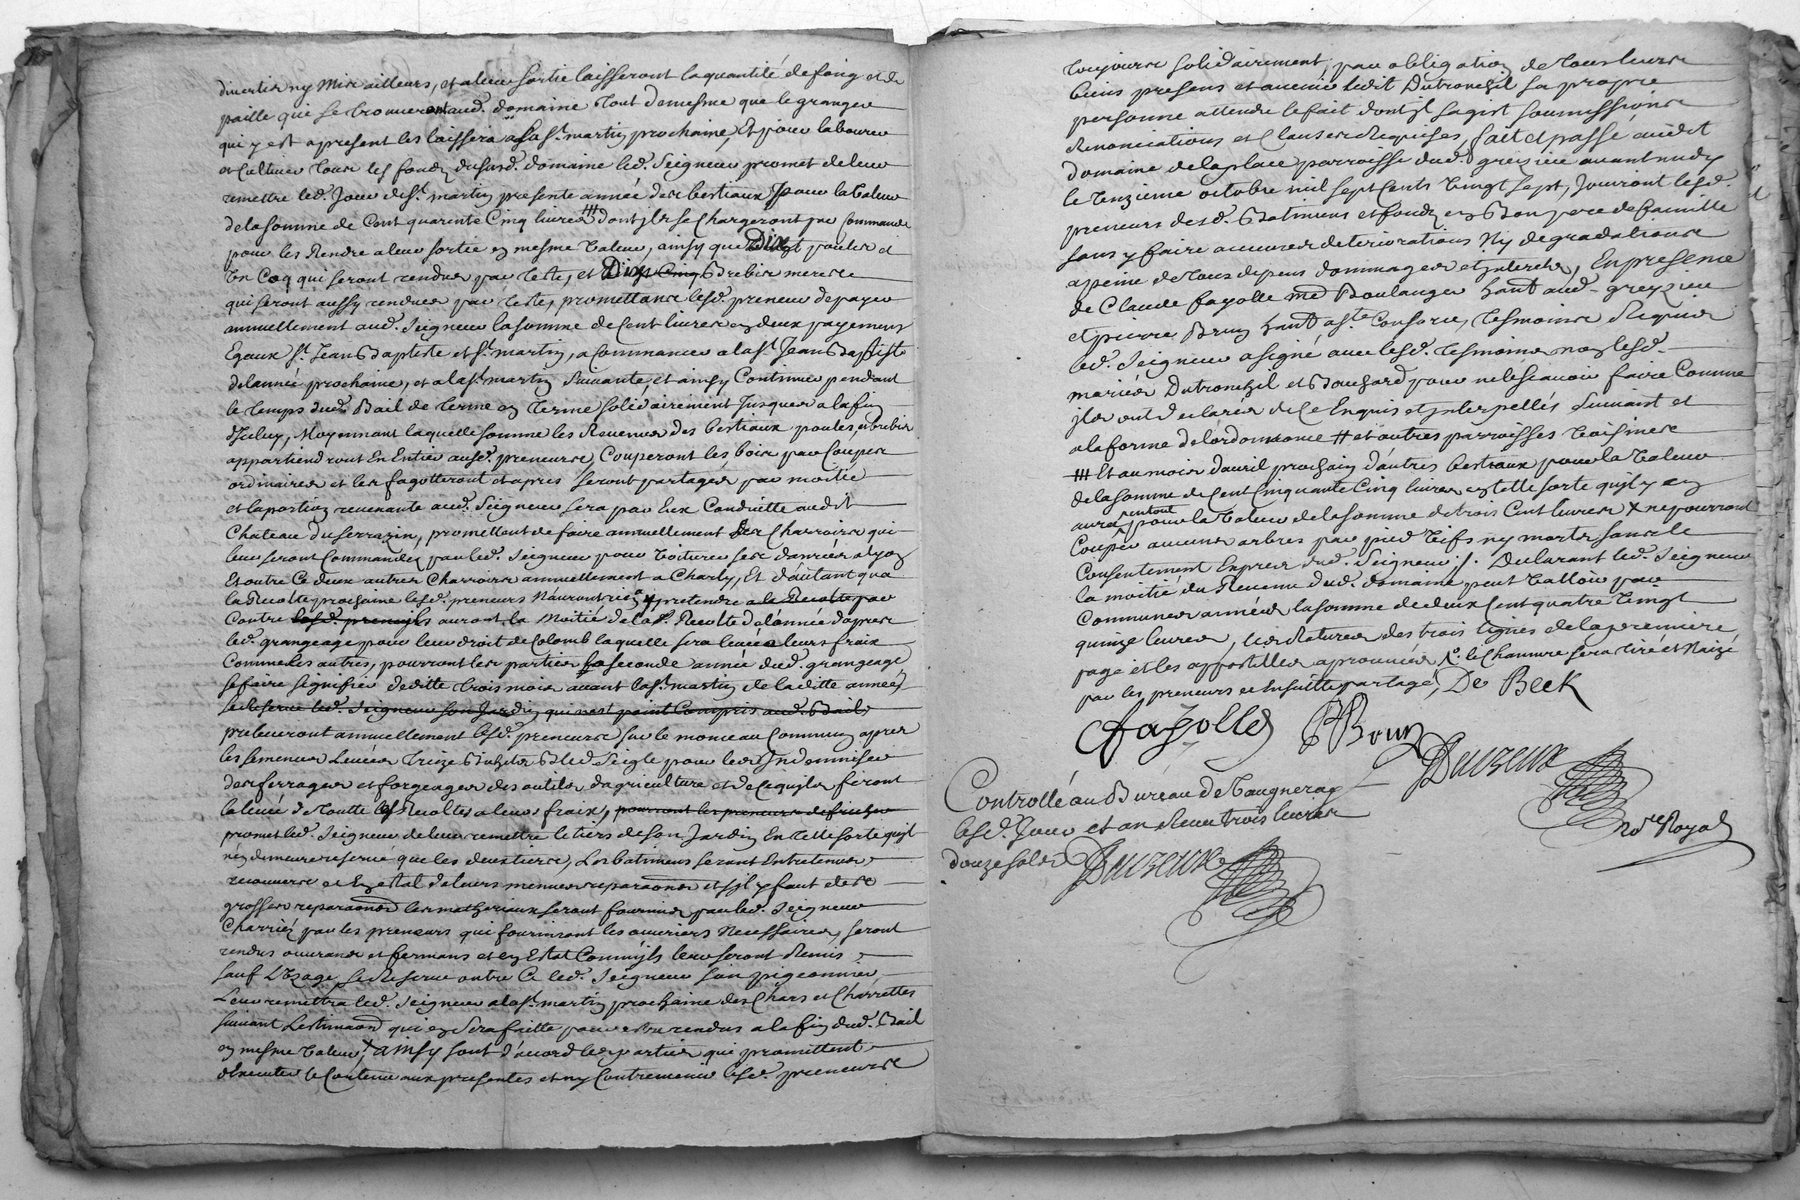 divertir ny mise ailleurs, et a leur sortie laisseront la quantité de foing et de
paille qui se trouveront aud. domaine tout de mesme que le granger
qui y est apresent les laissera a la st. martin prochaine, Et pour labourer
et Cultiver tous les fondz du susd. domaine led. Seigneur promet de leur
remettre led. Jour de st. martin presente année des bestiaux pour la valeur
de la somme de Cent quarente Cinq livres ### dont ils se chargeront par commande
pour les Rendre a leur sortie en mesme valeur, ainsy que Dix poules et
un Coq qui seront rendues par teste, et Dix Brebis meres
qui seront aussy rendues par teste, promettants lesd. preneurs de payer
annuellement aud. Seigneur la somme de Cent livres en deux payements
Egaux st. Jean Baptiste et st. martin, a Commancer a la st. Jean Baptiste
de l'année prochaine, et a la st. martin suivante, et ainsy Continuer pendant
le temps dud. Bail de terme en terme solidairement jusques a la fin
d'iceluy, Moyennant laquelle somme les Revenus des bestiaux poules, et brebis
appartiendront En Entier ausd. preneurs, Couperont les bois par Coupes
ordinaires et les fagotteront et apres seront partagés par moitié
et la portion revenante aud. Seigneur sera par Eux Conduitte audit
Chateau du serrazin, promettant de faire annuellement des Charrois qui
leur seront Commandés par led. Seigneur pour voiturer ses danrées a lyon
Et outre Ce deux autres Charrois annuellement a Charly, Et d'autant qu'a
la Recolte prochaine lesd. preneurs N'auront rien a y pretendre a la Recolte par
Contre lesd. preneurs auront la Moitié de la Recolte de l'année d'apres
led. grangeage pour leur droit de Colomb laquelle sera levée a leurs fraix
Comme les autres, pourront les parties la seconde année dud. grangeage
se faire signifier deditte trois mois avant la st. martin de laditte année
se Reserve led. Seigneur son Jardin qui n'est point Compris aud. Bail
preleveront annuellement lesd. preneurs sur le monceau Commun apres
les semences levées treize Bichets Bled Seigle pour les Indemniser
des ferrages et forgeages des outils d'agriculture et de ce qu'ils feront
la levée de toutte les Recoltes a leurs fraix, pourront les preneurs
promet led. Seigneur de leur remettre le tiers de son Jardin En telle sorte qu'il
n'en demeure reservé que les deux tiers, Les batiments seront Entretenus
recouverts et En estat de leurs menues reparaons et s'il y faut de
grosses reparaons les matheriaux seront fournis par led. Seigneur
Charriés par les preneurs qui fourniront les ouvriers Necessaires, seront
rendus ouvrants et fermans et en Estat Comm'ils leur seront Remis
sauf L'Usage, se Reserve outre Ce led. Seigneur son pigeonnier
Leur remettra led. Seigneur a la st. martin prochaine des Chars et Charrettes
suivant L'estimaon qui en sera faitte pour estre rendus a la fin dud. Bail
en mesme valeur, ainsy sont d'accord les parties qui promettent
d'executer le Contenu aux presentes et n'y Contrevenir lesd. preneurs
toujours solidairement, par obligation de tous leurs
biens presens et avenir ledit Dutronchil sa propre
personne attendu le fait dont il s'agit soumissions
Renonciations et Clauses Requises, fait et passé audit
domaine de la place parroisse dud. greizieu avant midy
le treizieme octobre mil sept Cents vingt sept, Jouiront lesd.
preneurs desd. Batimens et fondz en Bon pere de famille
sans y faire aucunes deteriorations Ny degradations
a peine de tous depens dommages et interets, En presence
de Claude fayolle md Boulanger hant aud. greyzieu
et pierre Brun hant a ste Consorce, tesmoins Requis
led. Seigneur a signé avec lesd. tesmoins non lesd.
mariés Dutronchil et Bouchard pour ne le scavoir faire Comme
ils ont declarés de Ce Enquis et interpellés suivant et
a la forme de l'ordonnance # et autres parroisses voisines
### Et au mois d'avril prochain d'autres bestiaux pour la valeur
de la somme de Cent Cinquante Cinq livres en telle sorte qu'il y en
aura en tout pour la valeur de la somme de trois Cent livres x ne pourront
Couper aucuns arbres par pied vifs ny morts sans le
Consentement Exprés dud. Seigneur /. Declarant led. Seigneur
la moitié du Revenu dud. domaine peut valloir par
Communes années la somme de deux Cent quatre vingt
quinze livres, les Ratures des trois lignes de la premiere
page et les appostilles aprouvées /. le Chanvre sera tiré et Naizé
par les preneurs et Ensuitte partagé, De Beck
fayolle PBrun
Duzeux
nore Royal
Controllé au Bureau de Vaugneray
lesd. Jour et an Receu trois livres
douze sols Duzeux